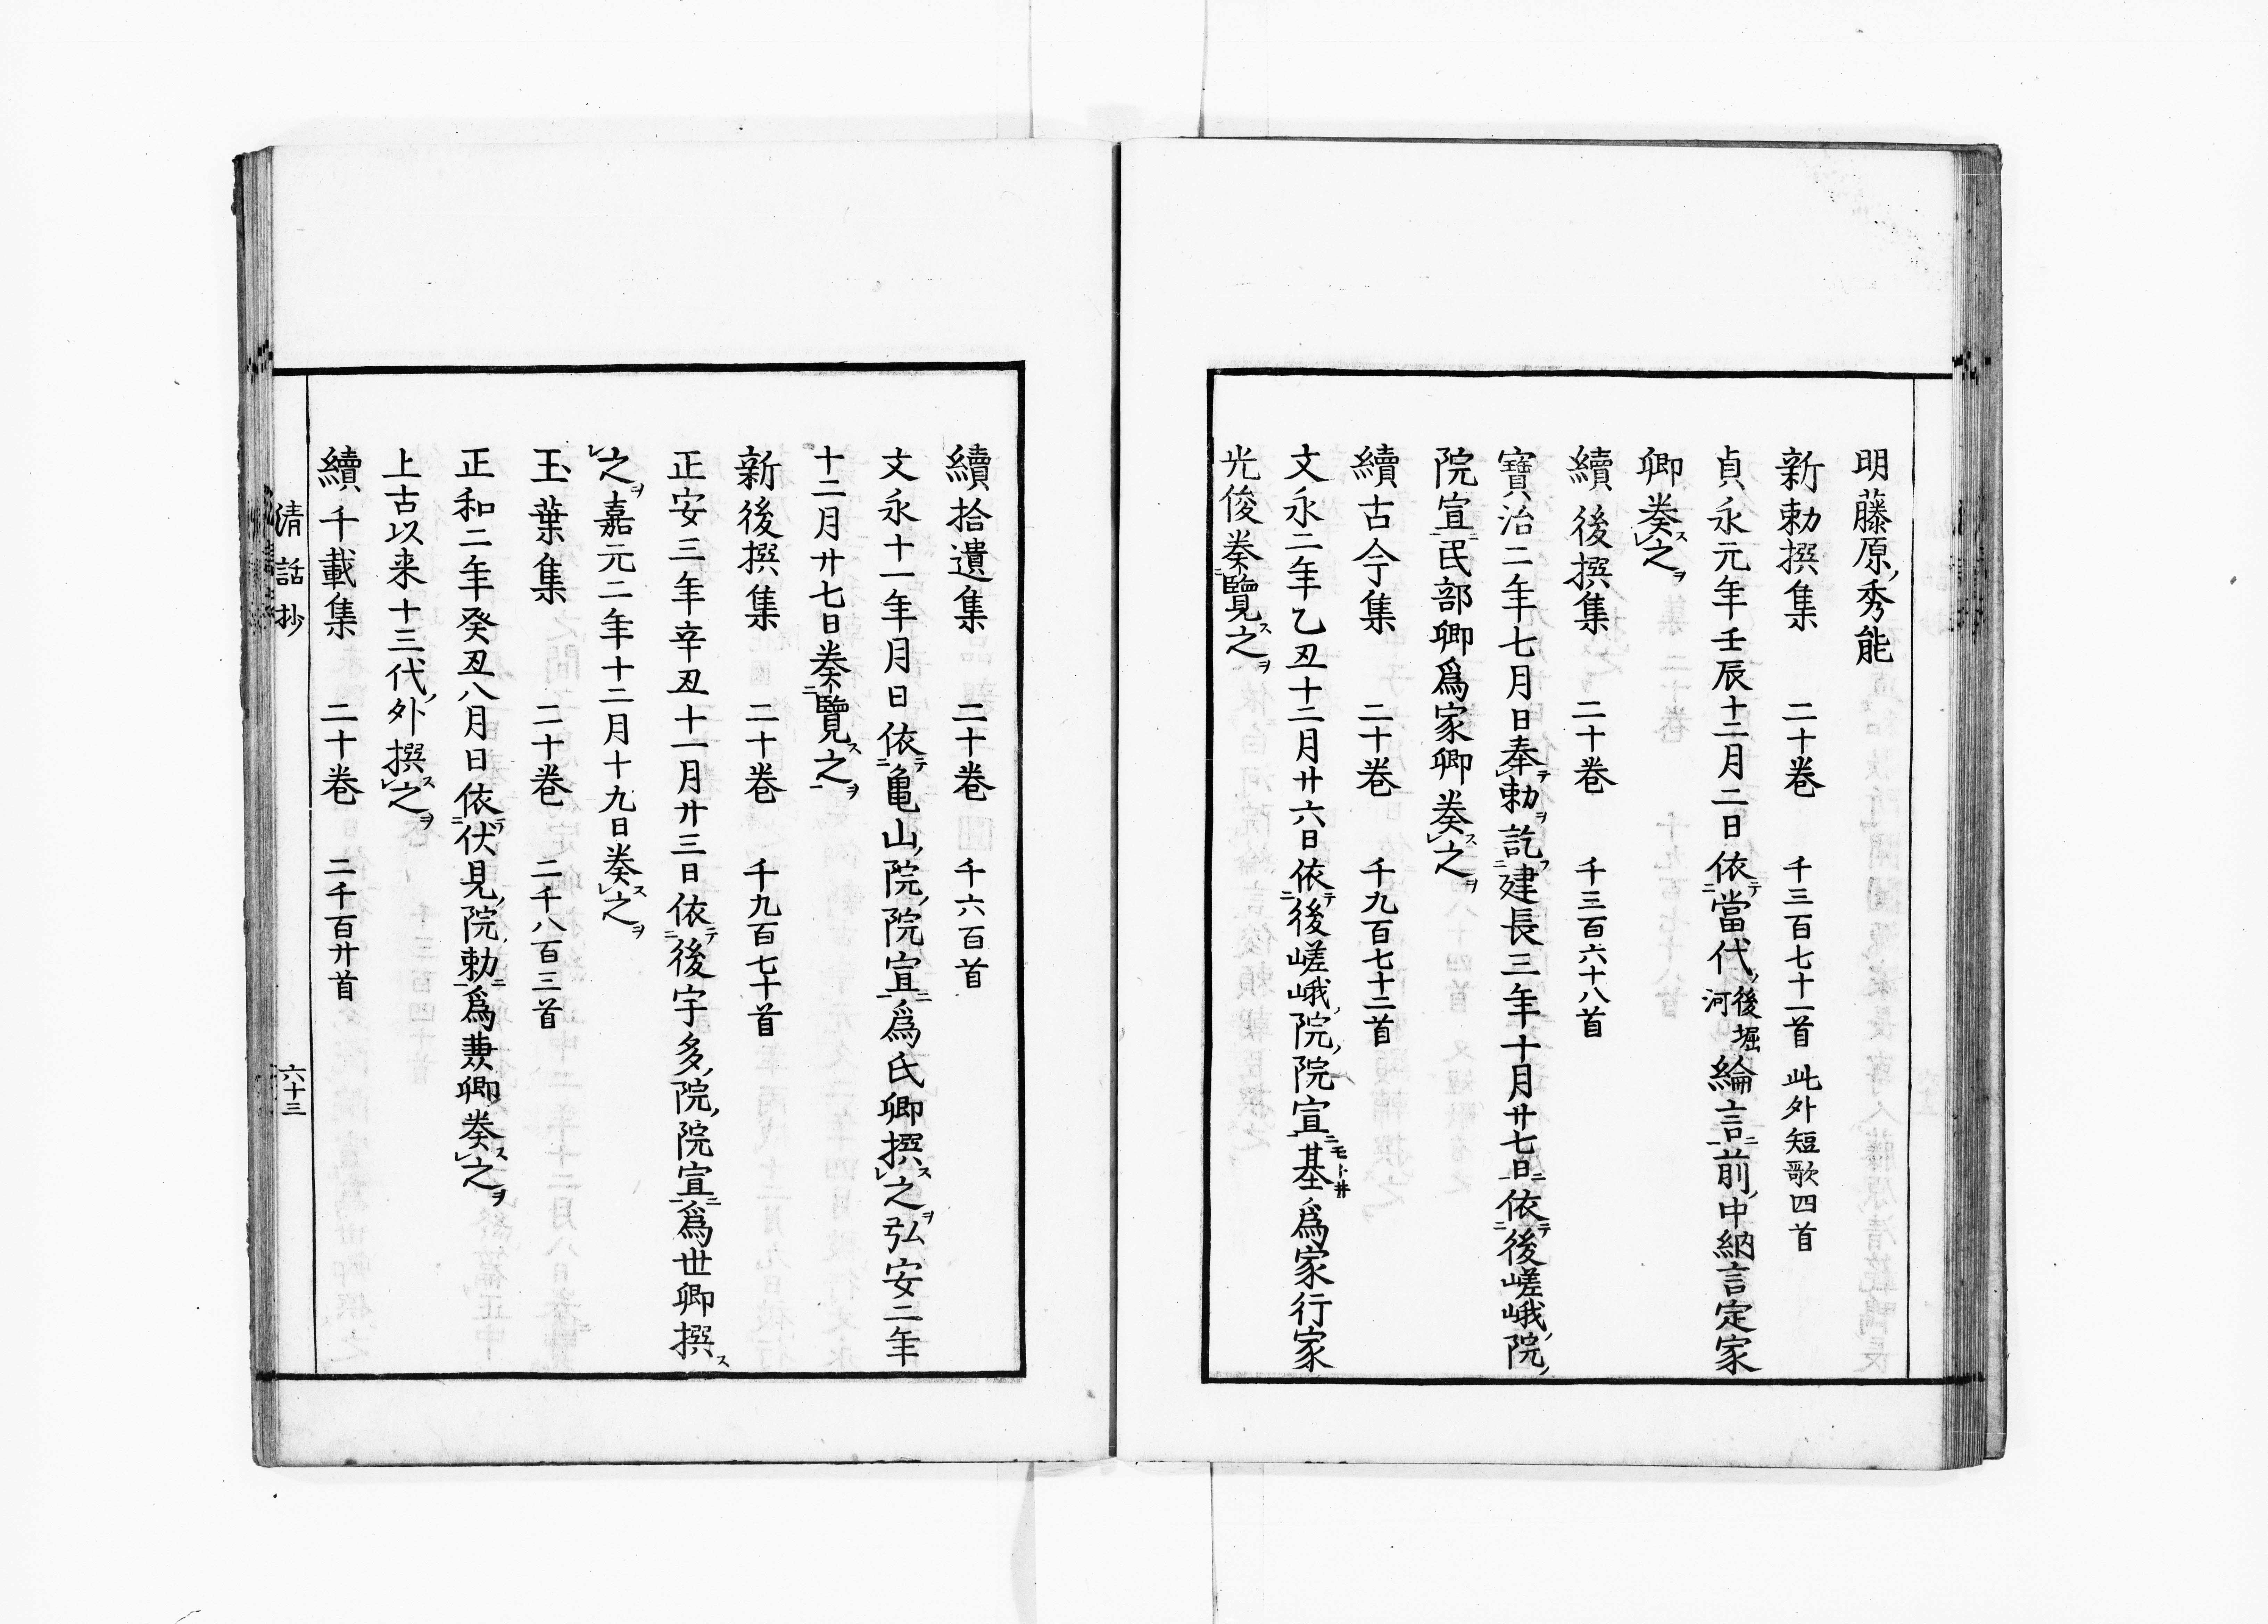 明藤原秀能
新勅撰集　二十巻　千三百七十一首　此外短歌四首
貞永元年壬辰十二月二日依テ二當代後堀河綸言ニ一前中納言定家
卿奏スレ之ヲ
續後撰集　二十巻　千三百六十八首
寶治二年七月日奉テレ勅ヲ訖フ二建長三年十月廿七日ニ一依テ二後嵯峨院ノ
院宣ニ一民部卿爲家卿奏スレ之ヲ
續古今集　二十巻　千九百七十二首
文永二年乙丑十二月廿六日依テ二後嵯峨ノ院ノ院宣ニ一基モト井爲家行家
光俊奏二覽ス之ヲ
續拾遺集　二十巻　千六百首
文永十一年月日依テ二亀山ノ院ノ院宣ニ一爲氏卿撰スレ之ヲ弘安二年
十二月廿七日奏二覽ス之ヲ一
新後撰集　二十巻　千九百七十首
正安三年辛丑十一月廿三日依テ二後宇多ノ院ノ院宣ニ一爲世卿撰ス
レ之ヲ嘉元二年十二月十九日奏スレ之ヲ
玉葉集　二十巻　二千八百三首
正和二年癸丑八月日依テ二伏見ノ院ノ勅ニ一爲兼卿奏スレ之ヲ
上古以来十三代ノ外撰スレ之ヲ
續千載集　二十巻　二千百廿首
清話抄　六十三